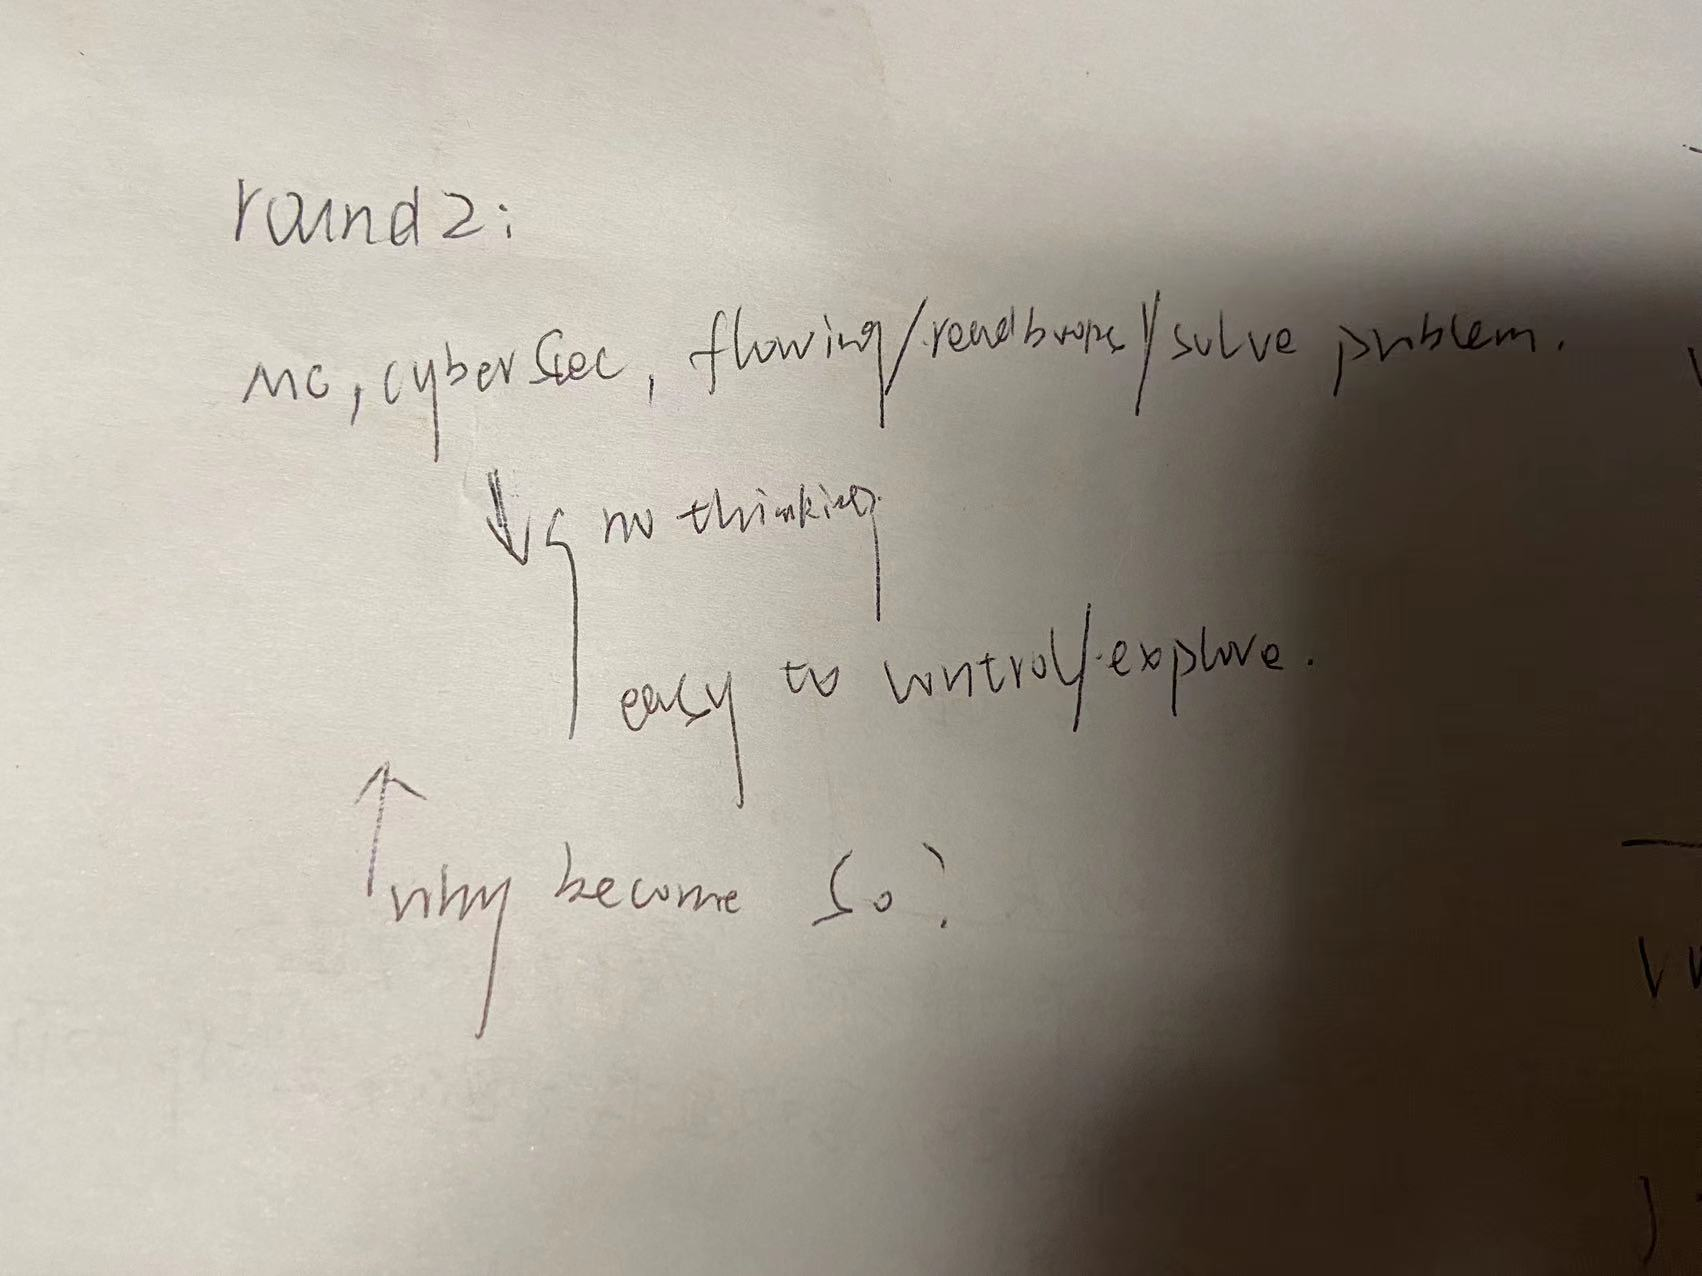 round2:
mc, cyberSec, flowing/read books/solve problem.
no thinking
easy to control/explore.
why become so?